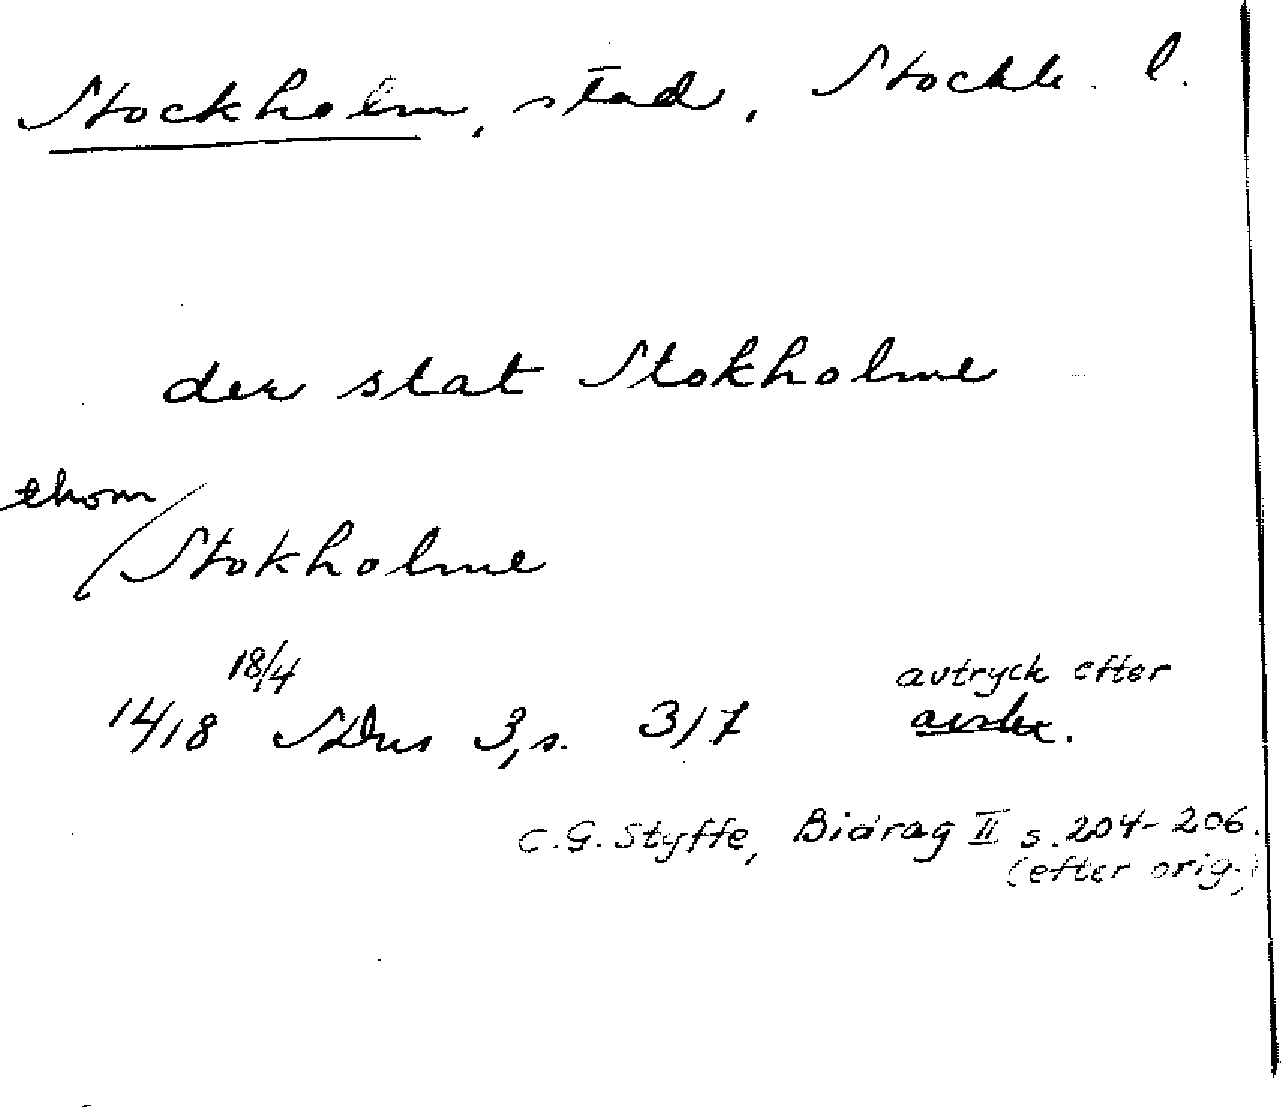 Stockholm, stad, Stockh. l.
der stat Stokholme
thom/Stokholme
18/4
1418 SDns 3, s. 317 avtryck efter
avskr.
C.G. Styffe, Bidrag II s. 204-206.
(efter orig.)